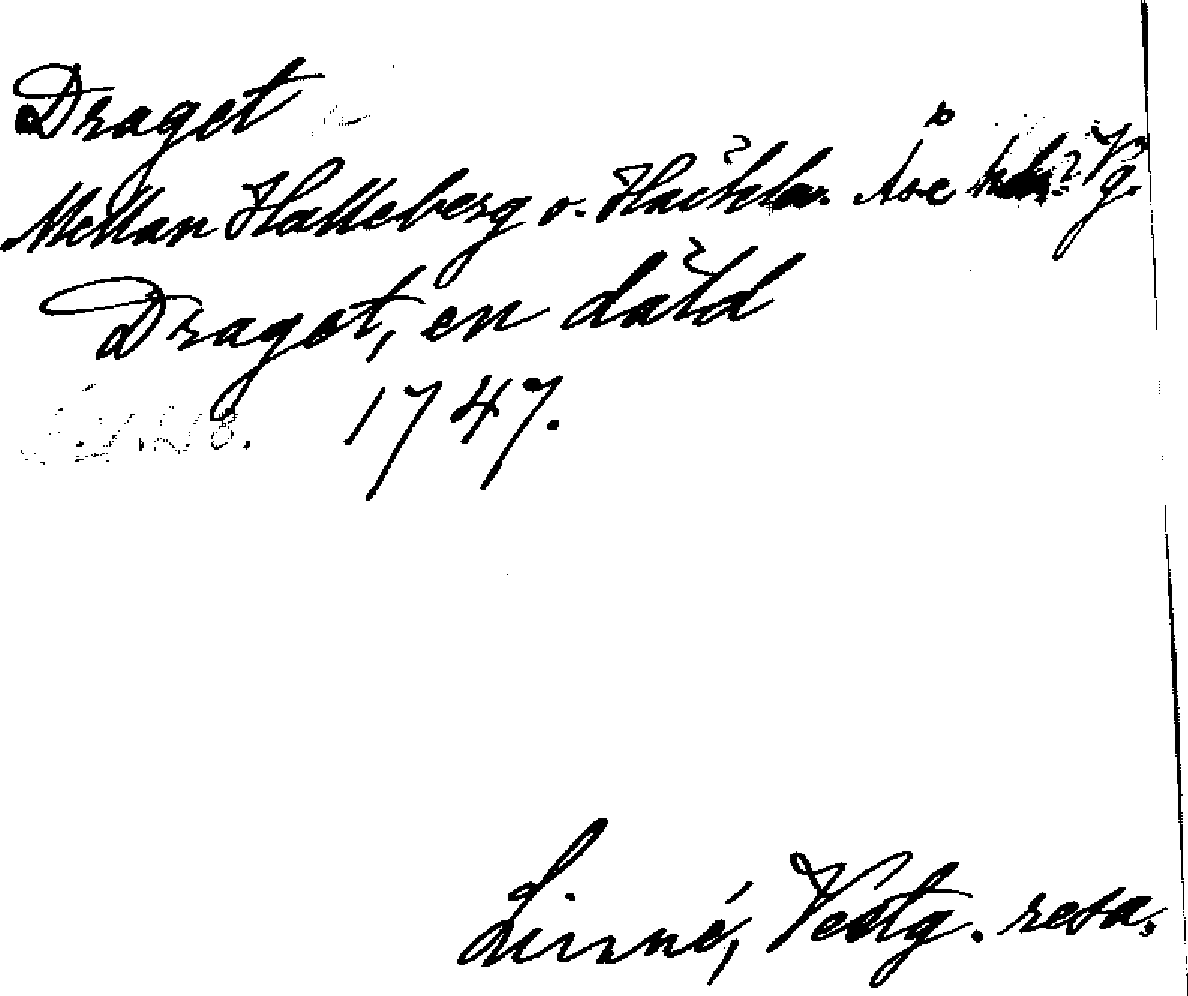 Draget
Mellan Halleberg o. Häckla. Åse hd. Vg.
Draget, en däld
1747.
Linné, Vestg. resa.